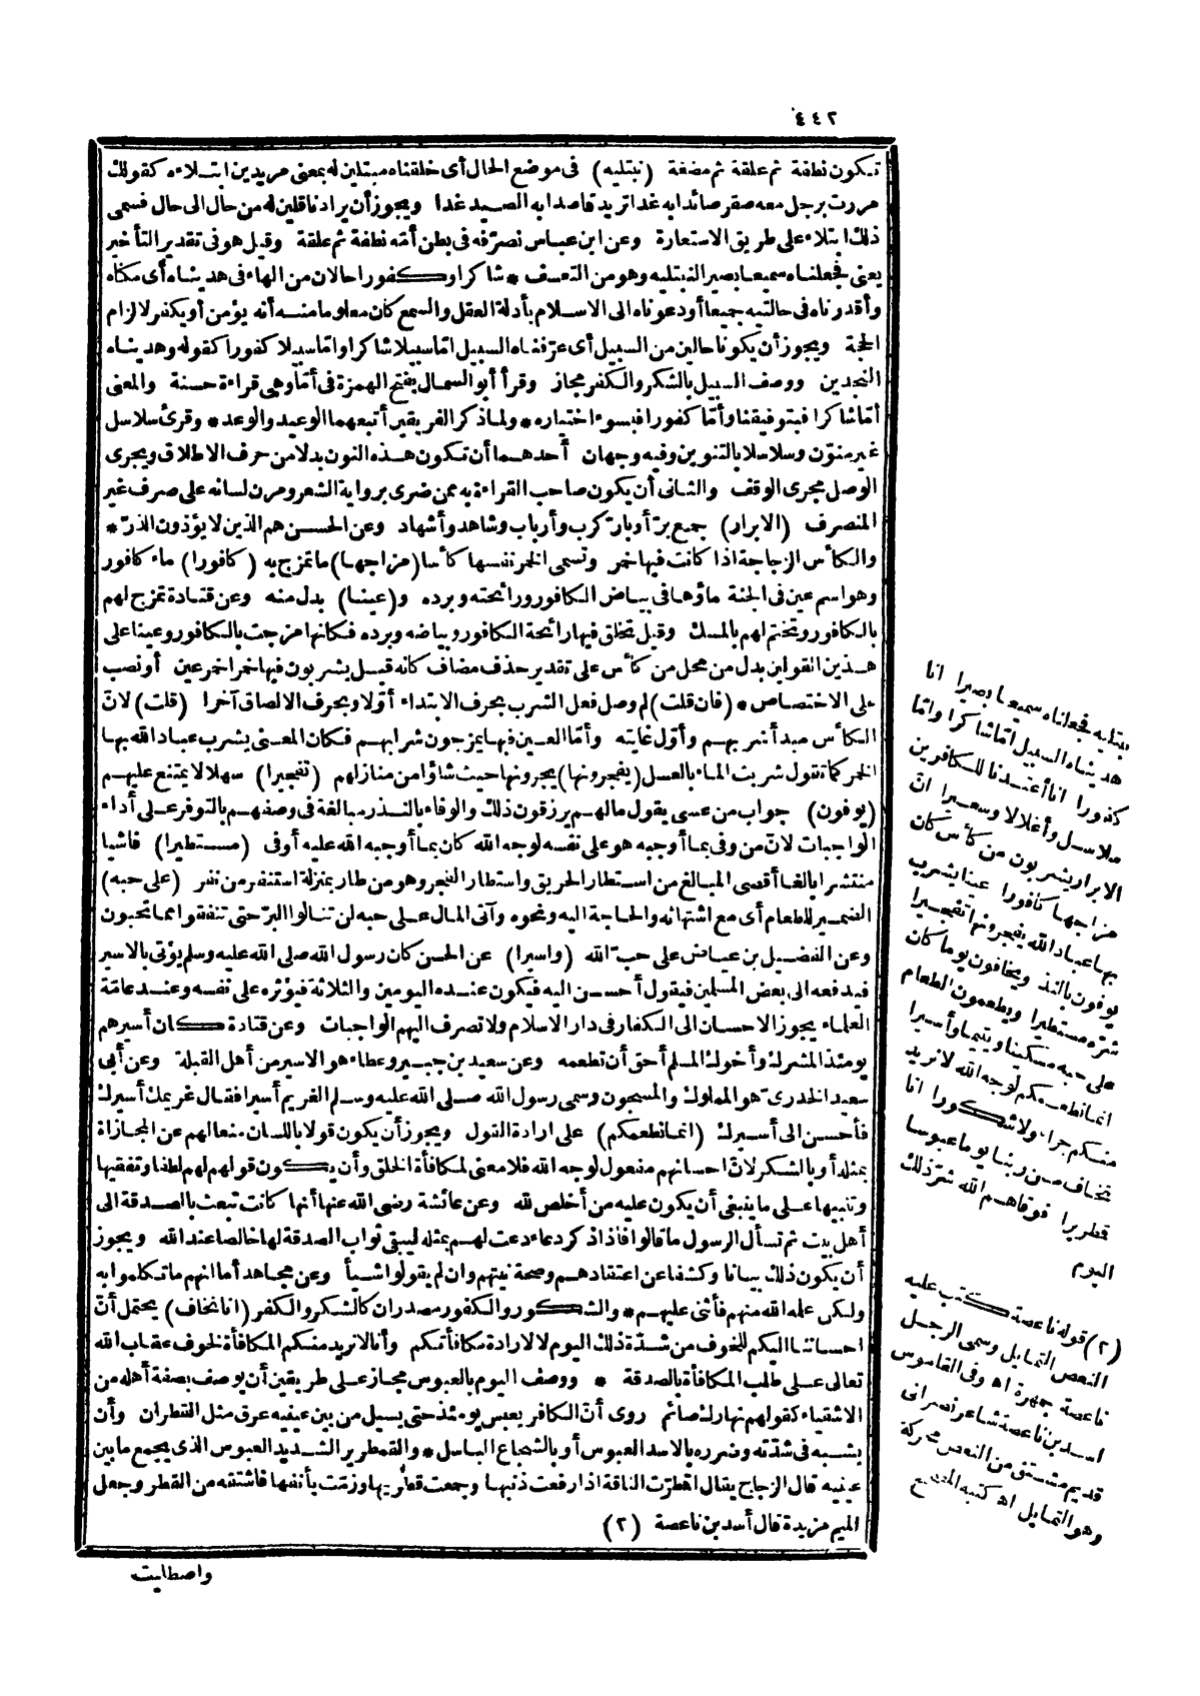 ٤٤٢
تكون نطفة ثم علقة ثم مضغة (نبتليه) فى موضع الحال أى خلقناه مبتلين له بمعنى مريدين ابتلاءه كقولك
مررت برجل معه صقر صائدا به غدا تريد قاصدا به الصيد غدا ويجوز أن يراد ناقلين له من حال الى حال فسمى
ذلك ابتلاء على طريق الاستعارة وعن ابن عباس نصرّفه فى بطن أمّه نطفة ثم علقة وقيل هو فى تقدير التأخير
يعنى فجعلناه سميعا بصيرا لنبتليه وهو من التعسف * شاكرا وكفورا حالان من الهاء فى هديناه أى مكناه
وأقدرناه فى حالتيه جميعا أو دعوناه الى الاسلام بأدلة العقل والسمع كان معلوما منه أنه يؤمن أو يكفر لالزام
الحجة ويجوز أن يكونا حالين من السبيل أى عرّفناه السبيل امّا سبيلا شاكرا وامّا سبيلا كفورا كقوله وهديناه
النجدين ووصف السبيل بالشكر والكفر مجاز وقرأ أبو السمال بفتح الهمزة فى أمّا وهى قراءة حسنة والمعنى
أمّا شاكرا فبتوفيقنا وأمّا كفورا فبسوء اختياره * ولما ذكر الفريقين أتبعهما الوعيد والوعد * وقرئ سلاسل
غير منوّن وسلاسلا بالتنوين وفيه وجهان أحدهما أن تكون هذه النون بدلا من حرف الاطلاق ويجرى
الوصل مجرى الوقف والثانى أن يكون صاحب القراءة به ممن ضرى برواية الشعر ومرن لسانه على صرف غير
المنصرف (الابرار) جمع برّ أو بارّ كرب وأرباب وشاهد وأشهاد وعن الحسن هم الذين لا يؤذون الذرّ *
والكأس الزجاجة اذا كانت فيها خمر وتسمى الخمر نفسها كأسا (مزاجها) ما تمزج به (كافورا) ماء كافور
وهو اسم عين فى الجنة ماؤها فى بياض الكافور ورائحته وبرده و(عينا) بدل منه وعن قتادة تمزج لهم
بالكافور وتختم لهم بالمسك وقيل تخلق فيها رائحة الكافور وبياضه وبرده فكأنها مزجت بالكافور وعينا على
هذين القولين بدل من محل من كأس على تقدير حذف مضاف كانه قيل يشربون فيها خمرا خمر عين أو نصب
على الاختصاص * (فان قلت) لم وصل فعل الشرب بحرف الابتداء أوّلا وبحرف الالصاق آخرا (قلت) لانّ
الكأس مبدأ شربهم وأوّل غايته وأمّا العين فبها يمزجون شرابهم فكان المعنى يشرب عباد الله بها
الخمر كما تقول شربت الماء بالعسل (يفجرونها) يجرونها حيث شاؤا من منازلهم (تفجيرا) سهلا لا يمتنع عليهم
(يوفون) جواب من عسى يقول ما لهم يرزقون ذلك والوفاء بالنذر مبالغة فى وصفهم بالتوفر على أداء
الواجبات لانّ من وفى بما أوجبه هو على نفسه لوجه الله كان بما أوجبه الله عليه أوفى (مستطيرا) فاشيا
منتشرا بالغا أقصى المبالغ من استطار الحريق واستطار الفجر وهو من طار بمنزلة استنفر من نفر (على حبه)
الضمير للطعام أى مع اشتهائه والحاجة اليه ونحوه وآتى المال على حبه لن تنالوا البرّ حتى تنفقوا مما تحبون
وعن الفضيل بن عياض على حبّ الله (وأسيرا) عن الحسن كان رسول الله صلى الله عليه وسلم يؤتى بالاسير
فيدفعه الى بعض المسلمين فيقول أحسن اليه فيكون عنده اليومين والثلاثة فيؤثره على نفسه وعند عامّة
العلماء يجوز الاحسان الى الكفار فى دار الاسلام ولا تصرف اليهم الواجبات وعن قتادة كان أسيرهم
يومئذ المشرك وأخوك المسلم أحق أن تطعمه وعن سعيد بن جبير وعطاء هو الاسير من أهل القبلة وعن أبى
سعيد الخدرىّ هو المملوك والمسجون وسمى رسول الله صلى الله عليه وسلم الغريم أسيرا فقال غريمك أسيرك
فأحسن الى أسيرك (انما نطعمكم) على ارادة القول ويجوز أن يكون قولا باللسان منعا لهم عن المجازاة
بمثله أو بالشكر لانّ احسانهم مفعول لوجه الله فلا معنى لمكافأة الخلق وأن يكون قولهم لهم لطفا وتفقيها
وتنبيها على ما ينبغى أن يكون عليه من أخلص لله وعن عائشة رضى الله عنها أنها كانت تبعث بالصدقة الى
أهل بيت ثم تسأل الرسول ما قالوا فاذا ذكر دعاء دعت لهم بمثله ليبقى ثواب الصدقة لها خالصا عند الله ويجوز
أن يكون ذلك بيانا وكشفا عن اعتقادهم وصحة نيتهم وان لم يقولوا شيأ وعن مجاهد أما انهم ما تكلموا به
ولكن علمه الله منهم فأثنى عليهم * والشكور والكفور مصدران كالشكر والكفر (انا نخاف) يحتمل أنّ
احساننا اليكم للخوف من شدّة ذلك اليوم لا لارادة مكافأتكم وأنا لا نريد منكم المكافأة لخوف عقاب الله
تعالى على طلب المكافأة بالصدقة * ووصف اليوم بالعبوس مجاز على طريقين أن يوصف بصفة أهله من
الاشقياء كقولهم نهارك صائم روى أنّ الكافر يعبس يومئذ حتى يسيل من بين عينيه عرق مثل القطران وأن
يشبه فى شدّته وضرره بالاسد العبوس أو بالشجاع الباسل * والقمطرير الشديد العبوس الذى يجمع ما بين
عينيه قال الزجاج يقال اقطرّت الناقة اذا رفعت ذنبها وجمعت قطريها وزمّت بأنفها فاشتقه من القطر وجعل
الميم مزيدة قال أسد بن ناعصة (٢)
واصطليت
نبتليه فجعلناه سميعا بصيرا انا
هديناه السبيل امّا شاكرا وامّا
كفورا انا أعتدنا للكافرين
سلاسل وأغلالا وسعيرا انّ
الابرار يشربون من كأس كان
مزاجها كافورا عينا يشرب
بها عباد الله يفجرونها تفجيرا
يوفون بالنذر ويخافون يوما كان
شرّه مستطيرا ويطعمون الطعام
على حبه مسكينا ويتيما وأسيرا
انما نطعمكم لوجه الله لا نريد
منكم جزاء ولا شكورا انا
نخاف من ربنا يوما عبوسا
قمطريرا فوقاهم الله شرّ ذلك
اليوم
(٢) قوله ناعصة كتب عليه
النعص التمايل وسمى الرجل
ناعصة جمهرة اه وفى القاموس
اسد بن ناعصة شاعر نصرانى
قديم مشتق من النعص محركة
وهو التمايل اه كتبه المصحح